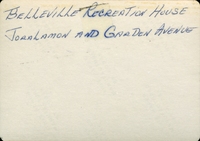 Belleville Recreation House
Joralamon and Garden Avenue